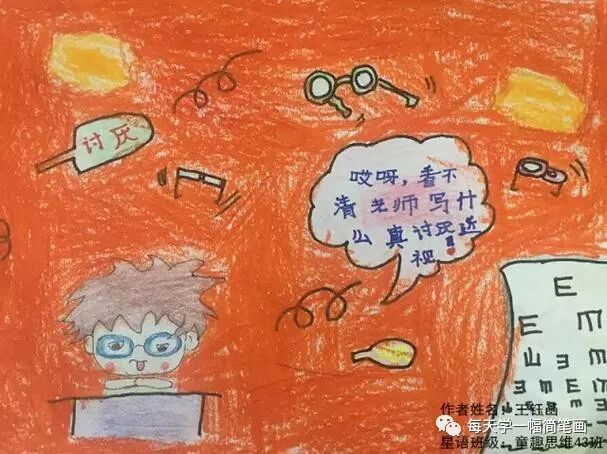 讨厌
哎呀，看不
清老师写什
么真讨厌近
视！
E
E
作者姓名：王钰
每天学一幅简笔画
星语班级：童趣思维43班